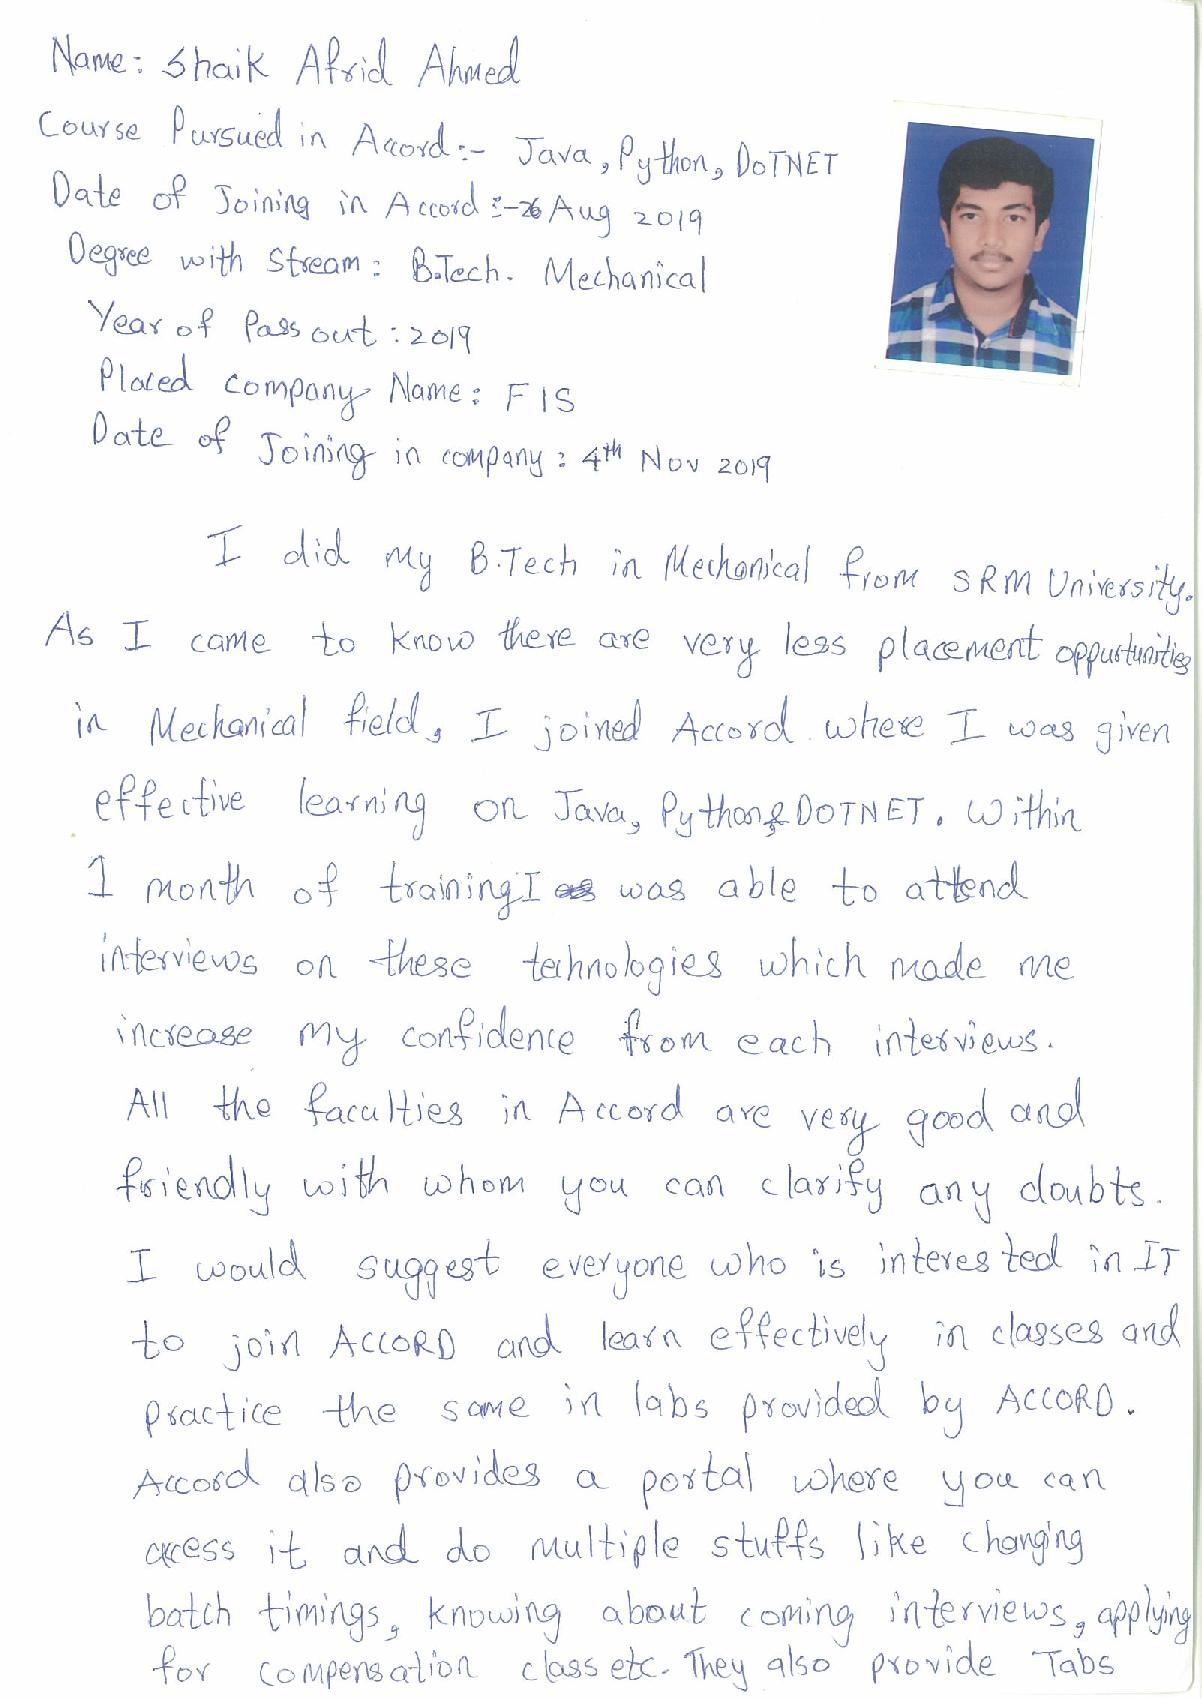 Name: Shaik Afrid Ahmed
Course Pursued in Accord:- Java, Python, DOTNET
Date of Joining in Accord :-26 Aug 2019
Degree with Stream: B.Tech. Mechanical
Year of Pass out : 2019
Placed company Name: FIS
Date of Joining in company: 4th Nov 2019
I did my B.Tech in Mechanical from SRM University.
As I came to know there are very less placement oppurtunities
in Mechanical field, I joined Accord where I was given
effective learning on Java, Python & DOTNET. Within
1 month of training I was able to attend
interviews on these technologies which made me
increase my confidence from each interviews.
All the faculties in Accord are very good and
friendly with whom you can clarify any doubts.
I would suggest everyone who is interested in IT
to join ACCORD and learn effectively in classes and
practice the same in labs provided by ACCORD.
Accord also provides a portal where you can
access it and do multiple stuffs like changing
batch timings, knowing about coming interviews, applying
for compensation class etc. They also provide Tabs